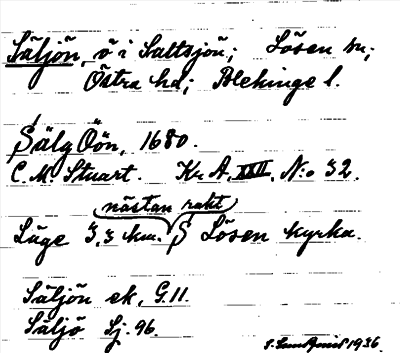 Säljön, ö i Saltsjön; Lösen sn;
Östra hd; Blekinge l.
Sälg Öön, 1680.
C. M. Stuart. Kr. A. XXII, N:o 32.
nästan rakt
Läge 3,3 km. S Lösen kyrka.
Säljön ek. G.11.
Säljö Sj. 96.
1936